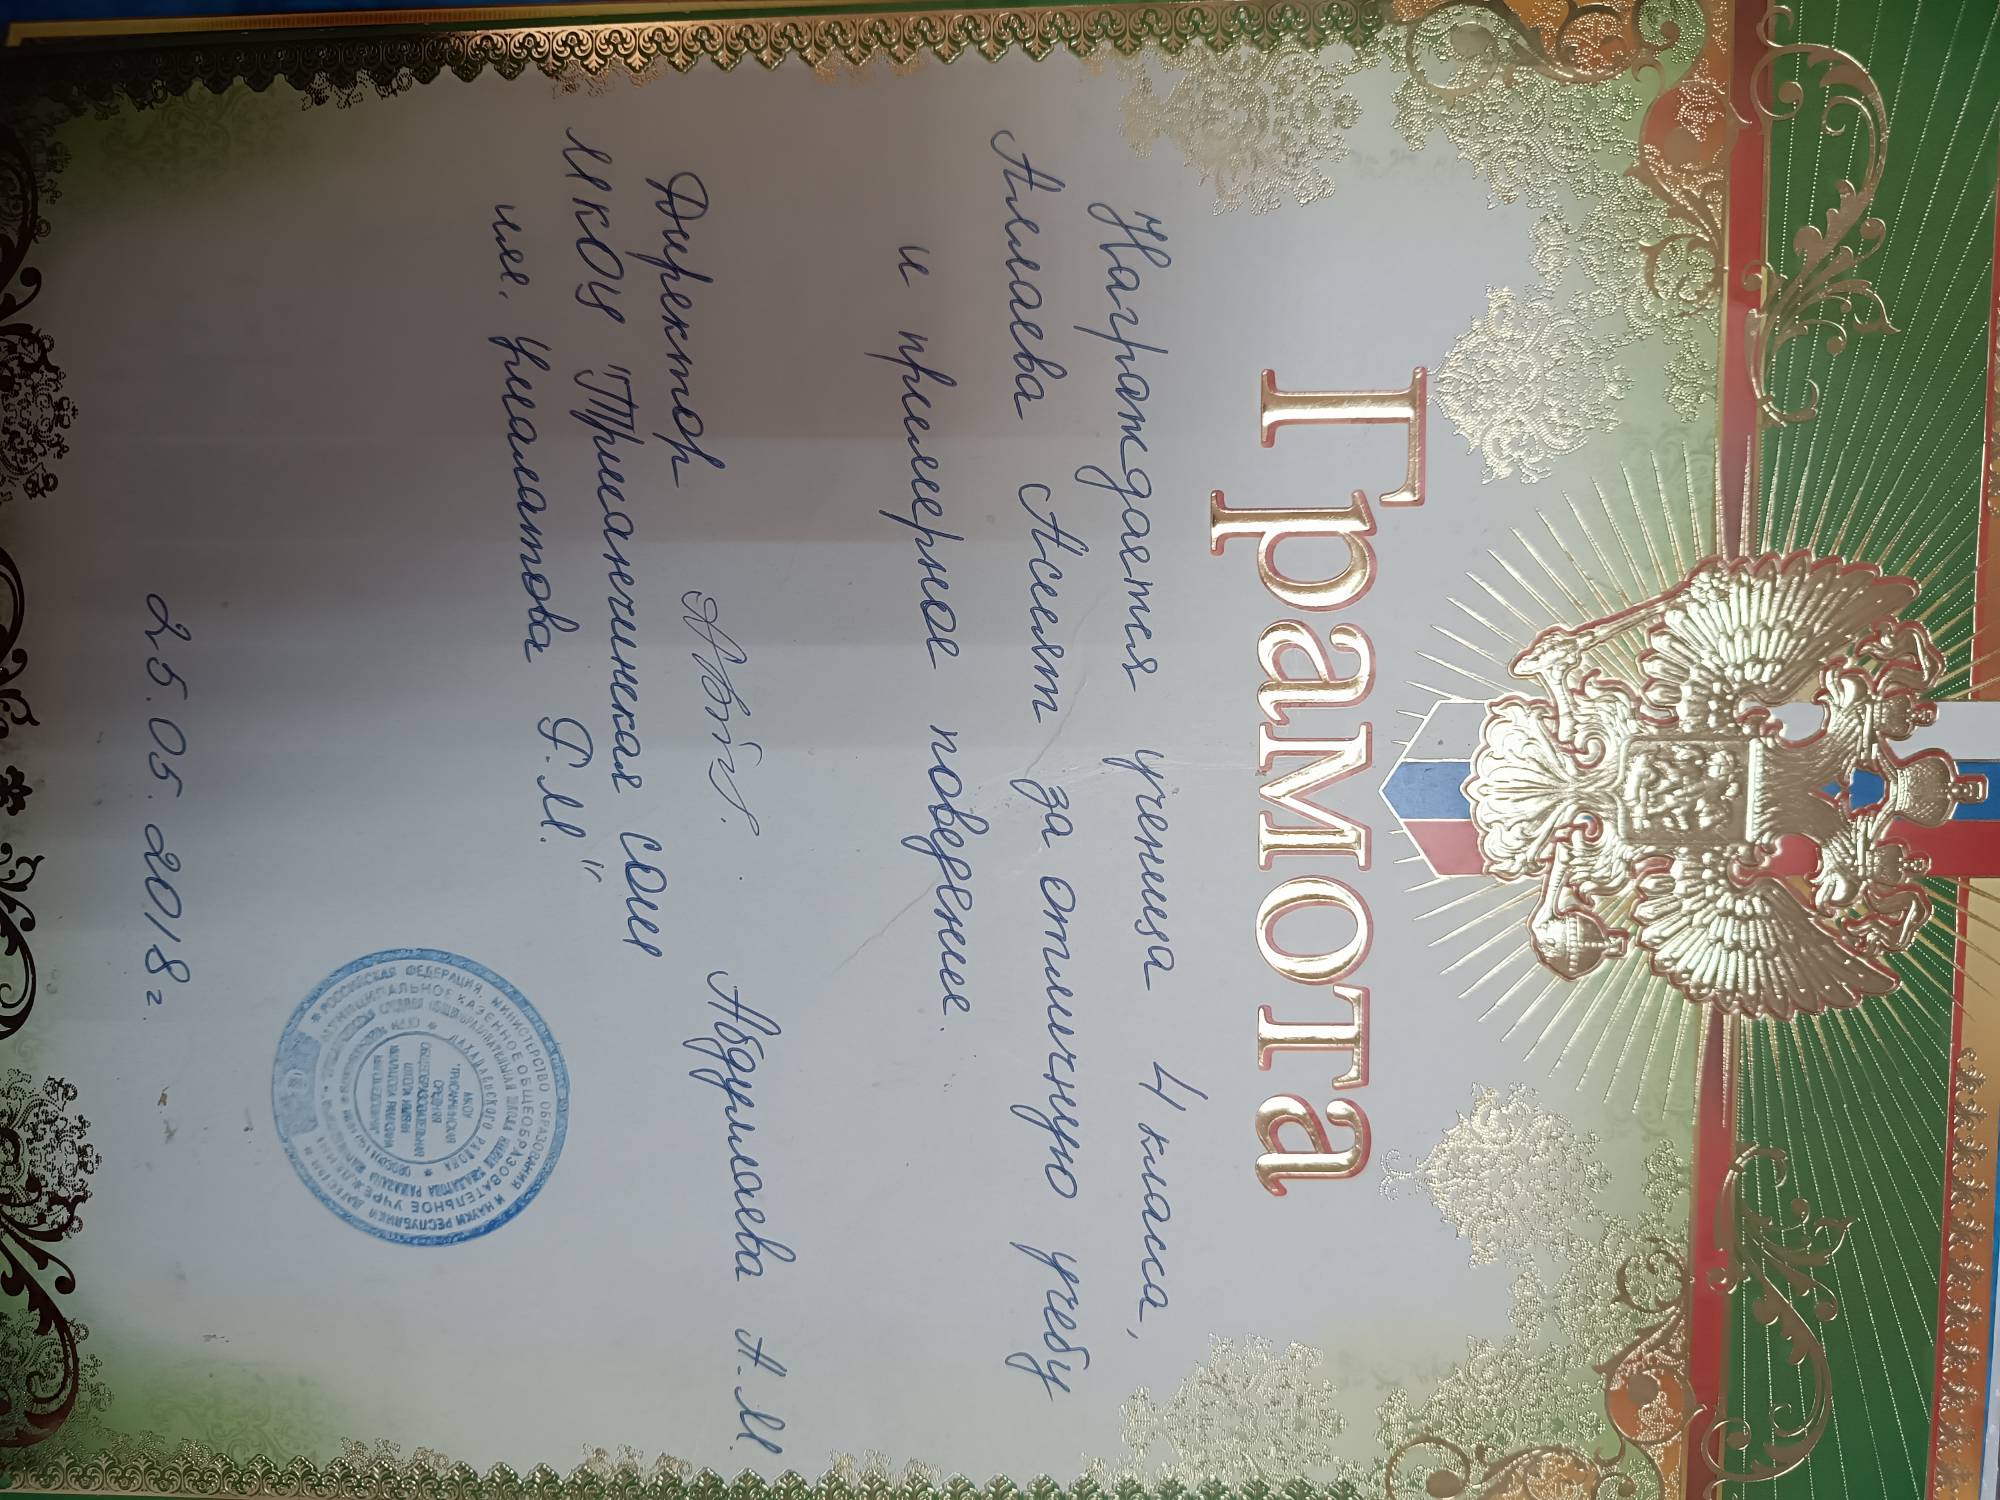 Грамота
Награждается ученица 4 класса,
Аллаева Асият за отличную учебу
и примерное поведение.
Директор Абдуллаева А.М.
МКОУ "Трисанчинская СОШ
им. Умалатова Р.М."
25.05.2018г.
РОССИЙСКАЯ ФЕДЕРАЦИЯ, МИНИСТЕРСТВО ОБРАЗОВАНИЯ И НАУКИ РЕСПУБЛИКИ ДАГЕСТАН
МУНИЦИПАЛЬНОЕ КАЗЕННОЕ ОБЩЕОБРАЗОВАТЕЛЬНОЕ УЧРЕЖДЕНИЕ
ДАХАДАЕВСКОГО РАЙОНА
МКОУ
ТРИСАНЧИНСКАЯ
СРЕДНЯЯ
ОБЩЕОБРАЗОВАТЕЛЬНАЯ
ШКОЛА ИМЕНИ